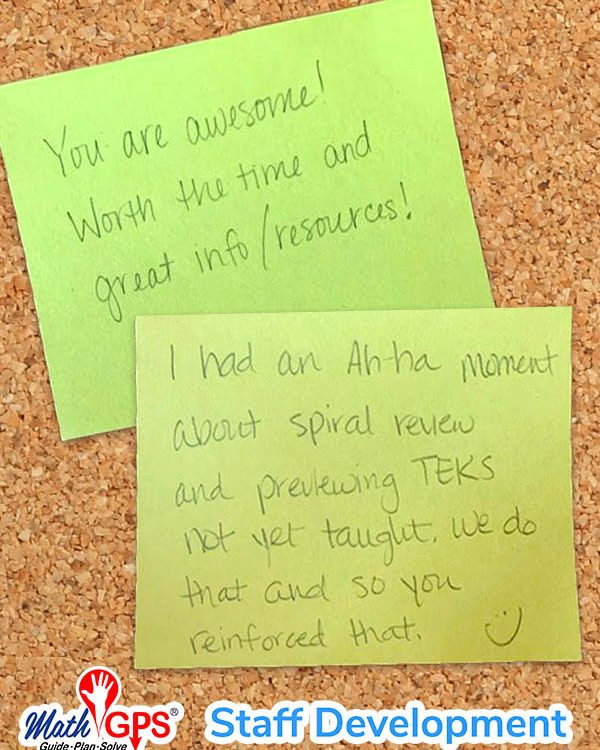 You are awesome!
Worth the time and
great info/resources!
I had an Ah-ha moment
about spiral review
and previewing TEKS
not yet taught. We do
that and so you
reinforced that.
Math GPS®
Guide-Plan-Solve
Staff Development